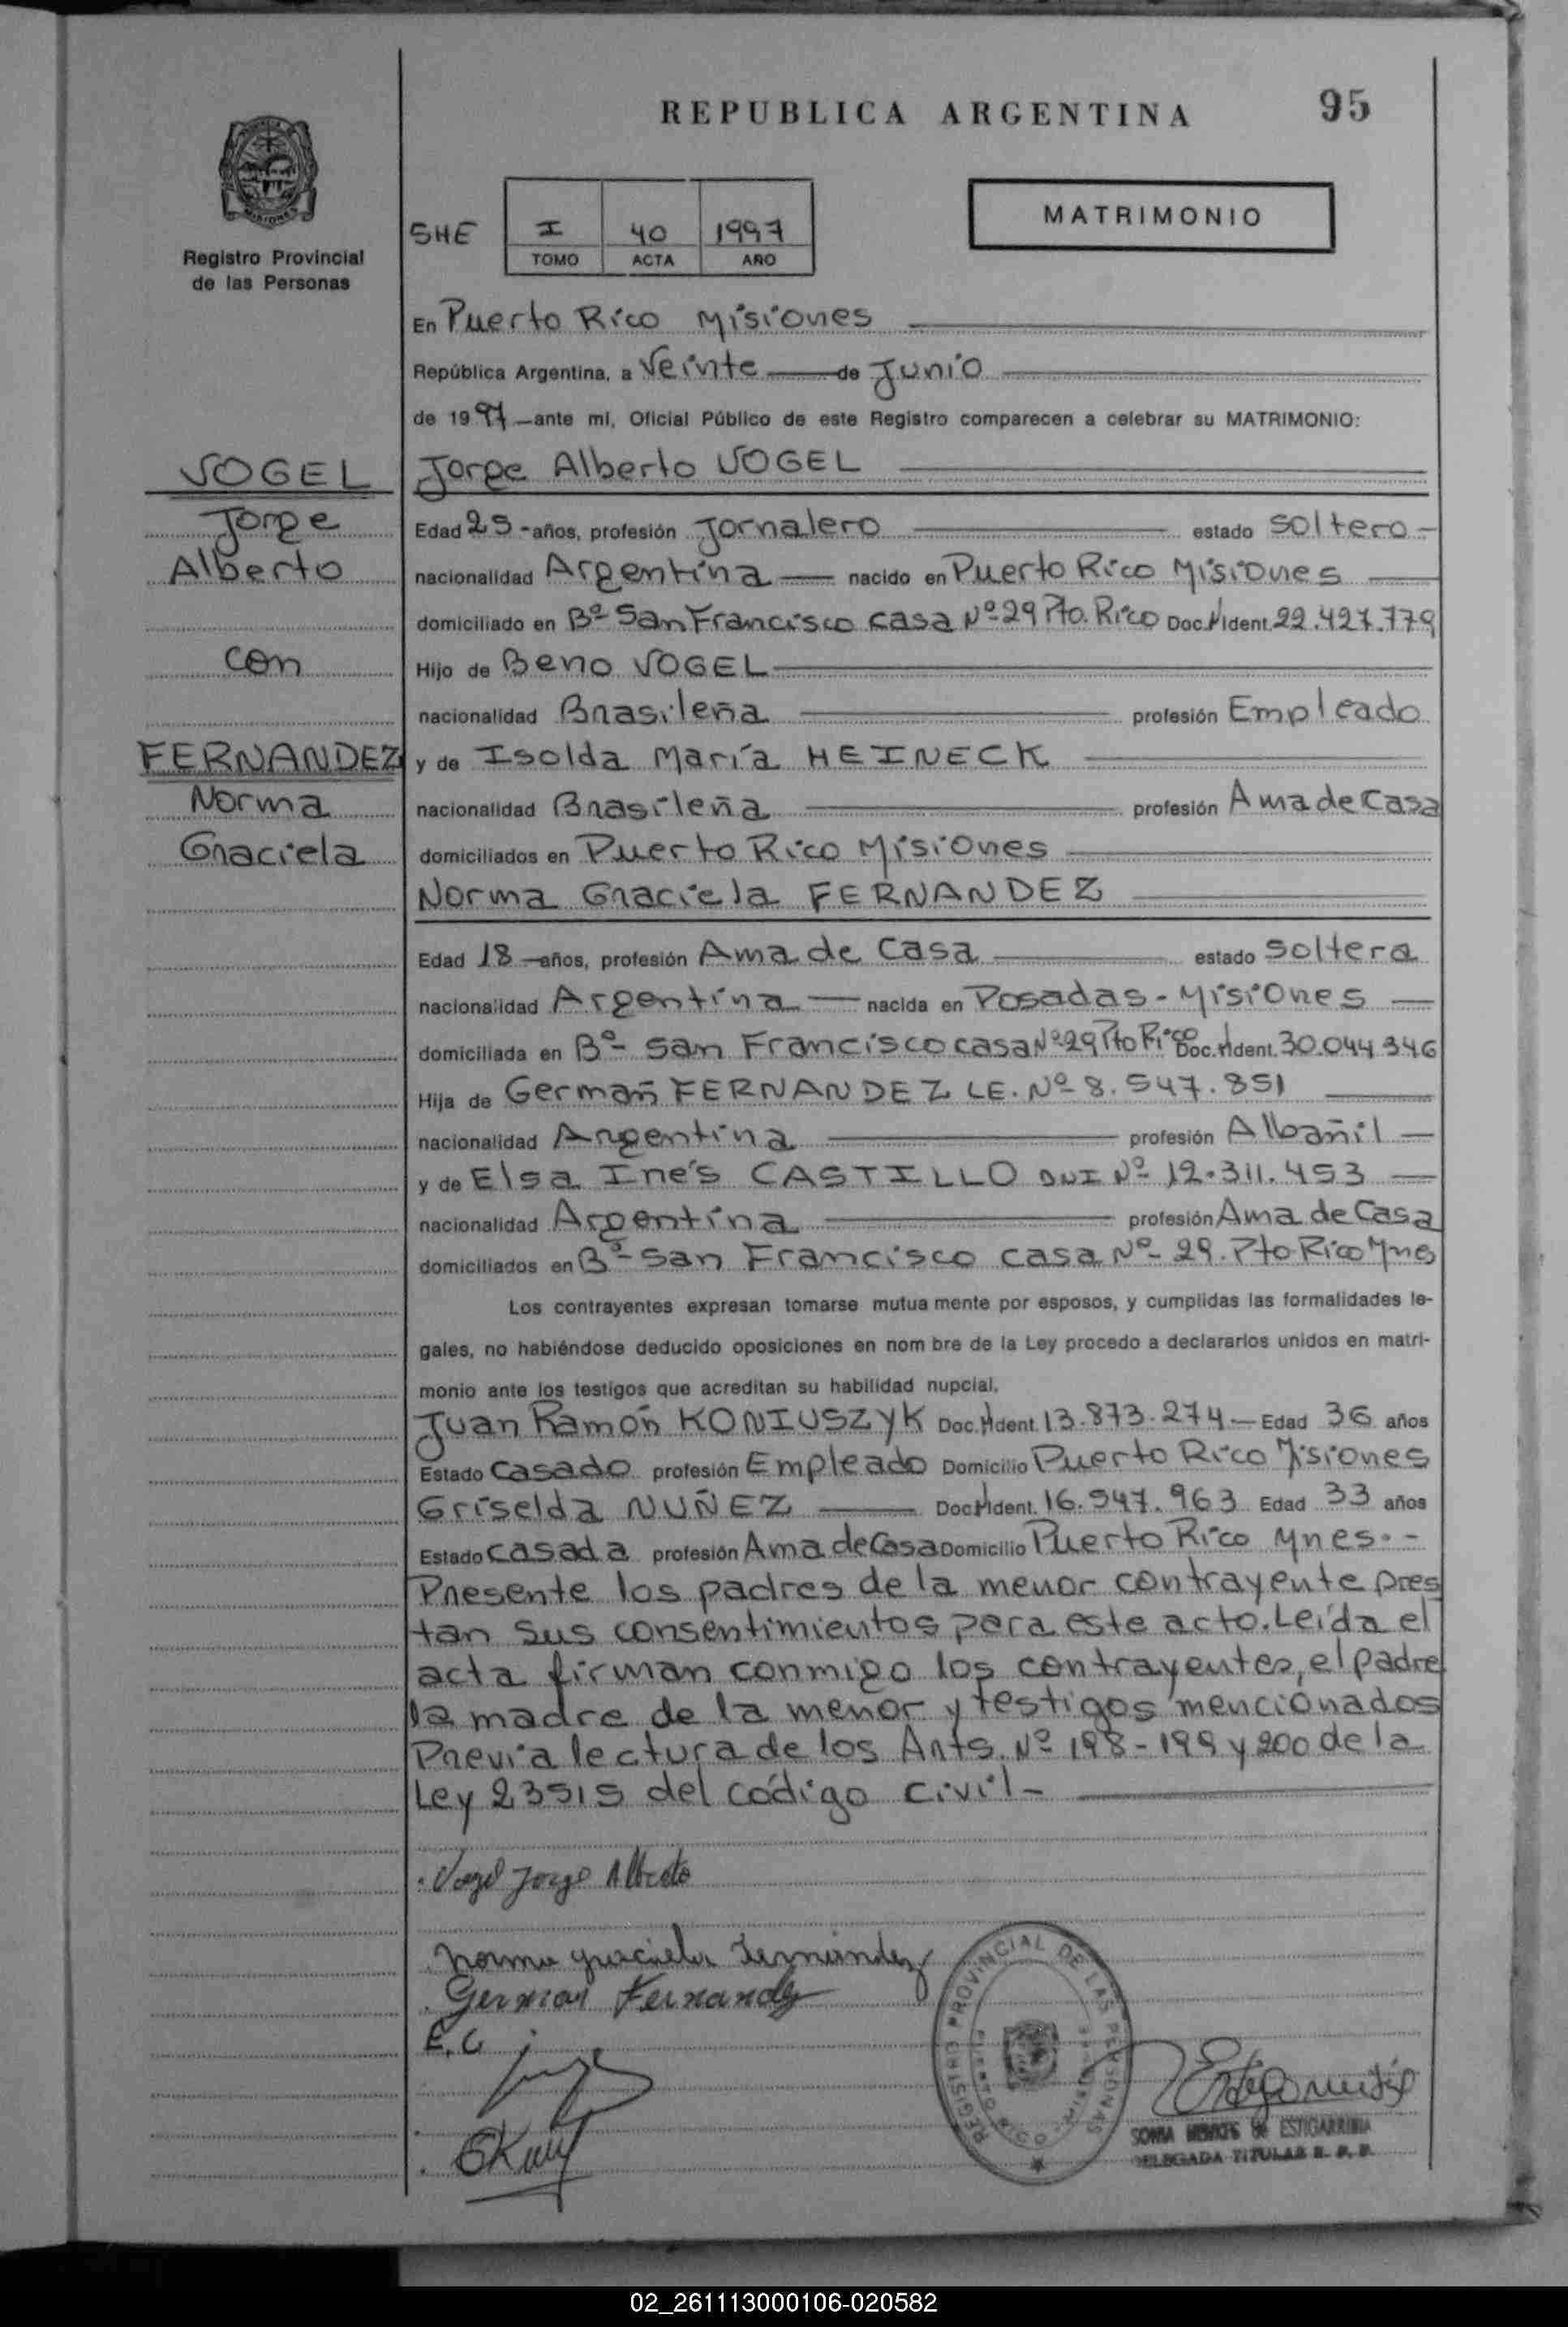 REPUBLICA ARGENTINA
95
Registro Provincial
de las Personas
SHE
I
40
1997
TOMO
ACTA
AÑO
MATRIMONIO
En Puerto Rico Misiones
República Argentina, a Veinte de Junio
de 1997 ante mí, Oficial Público de este Registro comparecen a celebrar su MATRIMONIO:
VOGEL
Jorge
Alberto
con
FERNANDEZ
Norma
Graciela
Jorge Alberto VOGEL
Edad 25 - años, profesión Jornalero estado soltero -
nacionalidad Argentina nacido en Puerto Rico Misiones
domiciliado en Bº San Francisco casa Nº 29 Pto. Rico Doc. N Ident. 22.427.779
Hijo de Beno VOGEL
nacionalidad Brasileña profesión Empleado
y de Isolda María HEINECK
nacionalidad Brasileña profesión Ama de Casa
domiciliados en Puerto Rico Misiones
Norma Graciela FERNANDEZ
Edad 18 años, profesión Ama de Casa estado soltera
nacionalidad Argentina nacida en Posadas - Misiones
domiciliada en Bº San Francisco casa Nº 29 Pto Rico Doc. N Ident. 30.044.346
Hija de Germán FERNANDEZ LE. Nº 8.547.851
nacionalidad Argentina profesión Albañil
y de Elsa Inés CASTILLO DNI Nº 12.311.453
nacionalidad Argentina profesión Ama de Casa
domiciliados en Bº San Francisco casa Nº 29. Pto Rico Mnes
Los contrayentes expresan tomarse mutua mente por esposos, y cumplidas las formalidades le-
gales, no habiéndose deducido oposiciones en nom bre de la Ley procedo a declararlos unidos en matri-
monio ante los testigos que acreditan su habilidad nupcial,
Juan Ramón KONIUSZYK Doc. N Ident. 13.873.274 Edad 36 años
Estado Casado profesión Empleado Domicilio Puerto Rico Misiones
Griselda NUÑEZ Doc N Ident. 16.947.963 Edad 33 años
Estado Casada profesión Ama de Casa Domicilio Puerto Rico Mnes.-
Presente los padres de la menor contrayente pres
tan sus consentimientos para este acto. Leída el
acta firman conmigo los contrayentes, el padre
la madre de la menor y testigos mencionados
Previa lectura de los Arts. Nº 198-199 y 200 de la
Ley 23515 del código civil-
Vogel Jorge Alberto
Norma Graciela Fernandez
German Fernandez
E. C
REGISTRO PROVINCIAL DE LAS PERSONAS
DE ESTIGARRIBIA
DELEGADA TITULAR R. P. P.
02_261113000106-020582